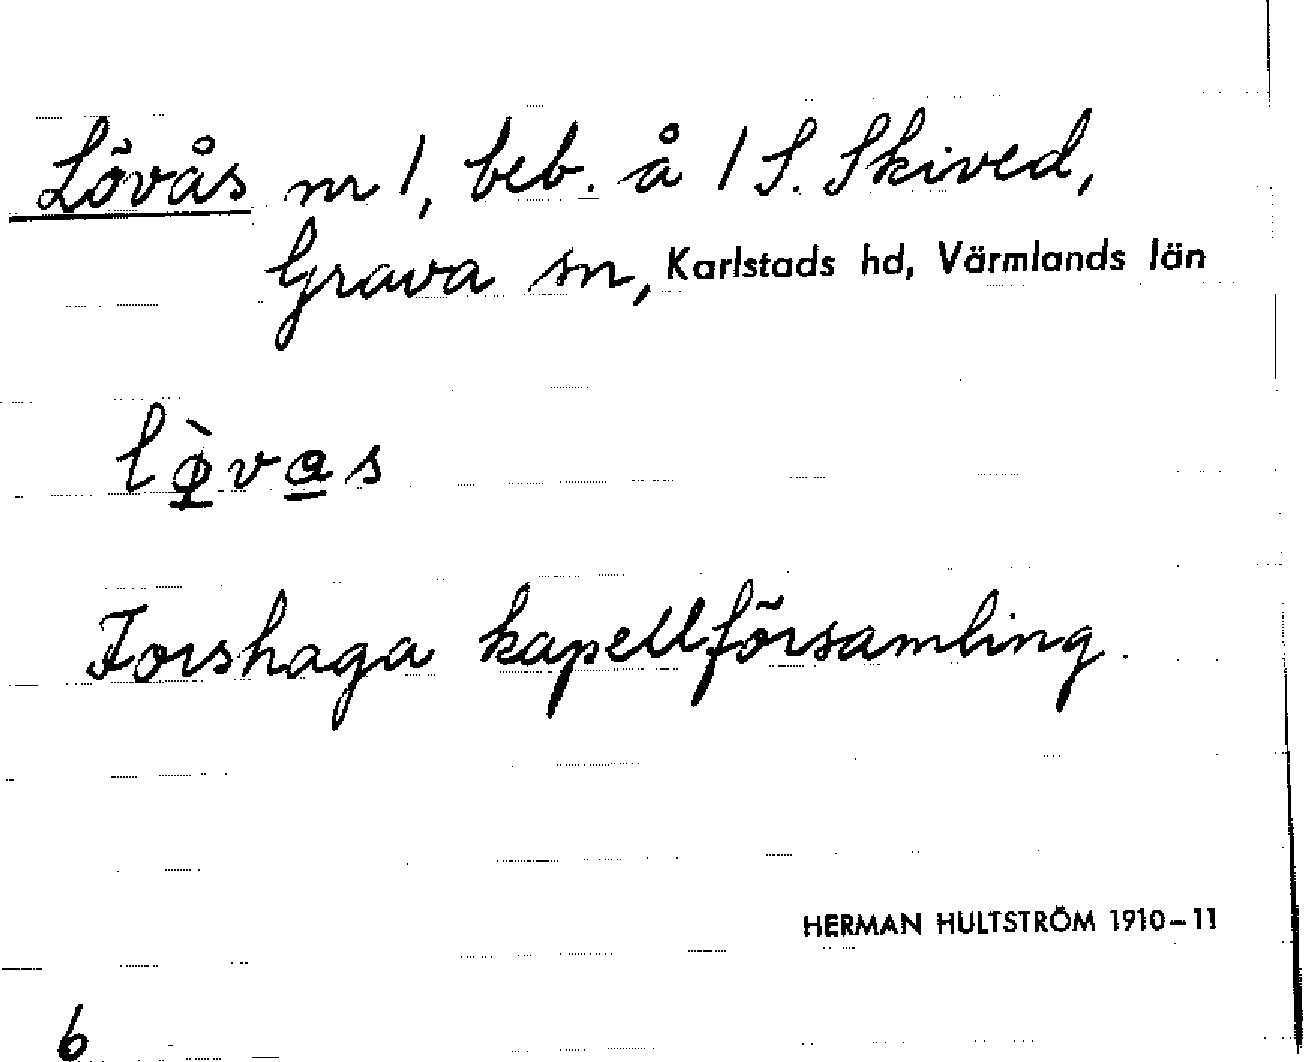 Lövås nr 1, beb. å 1 S. Skived,
Grava sn, Karlstads hd, Värmlands län
Forshaga kapellförsamling.
HERMAN HULTSTRÖM 1910-11
6